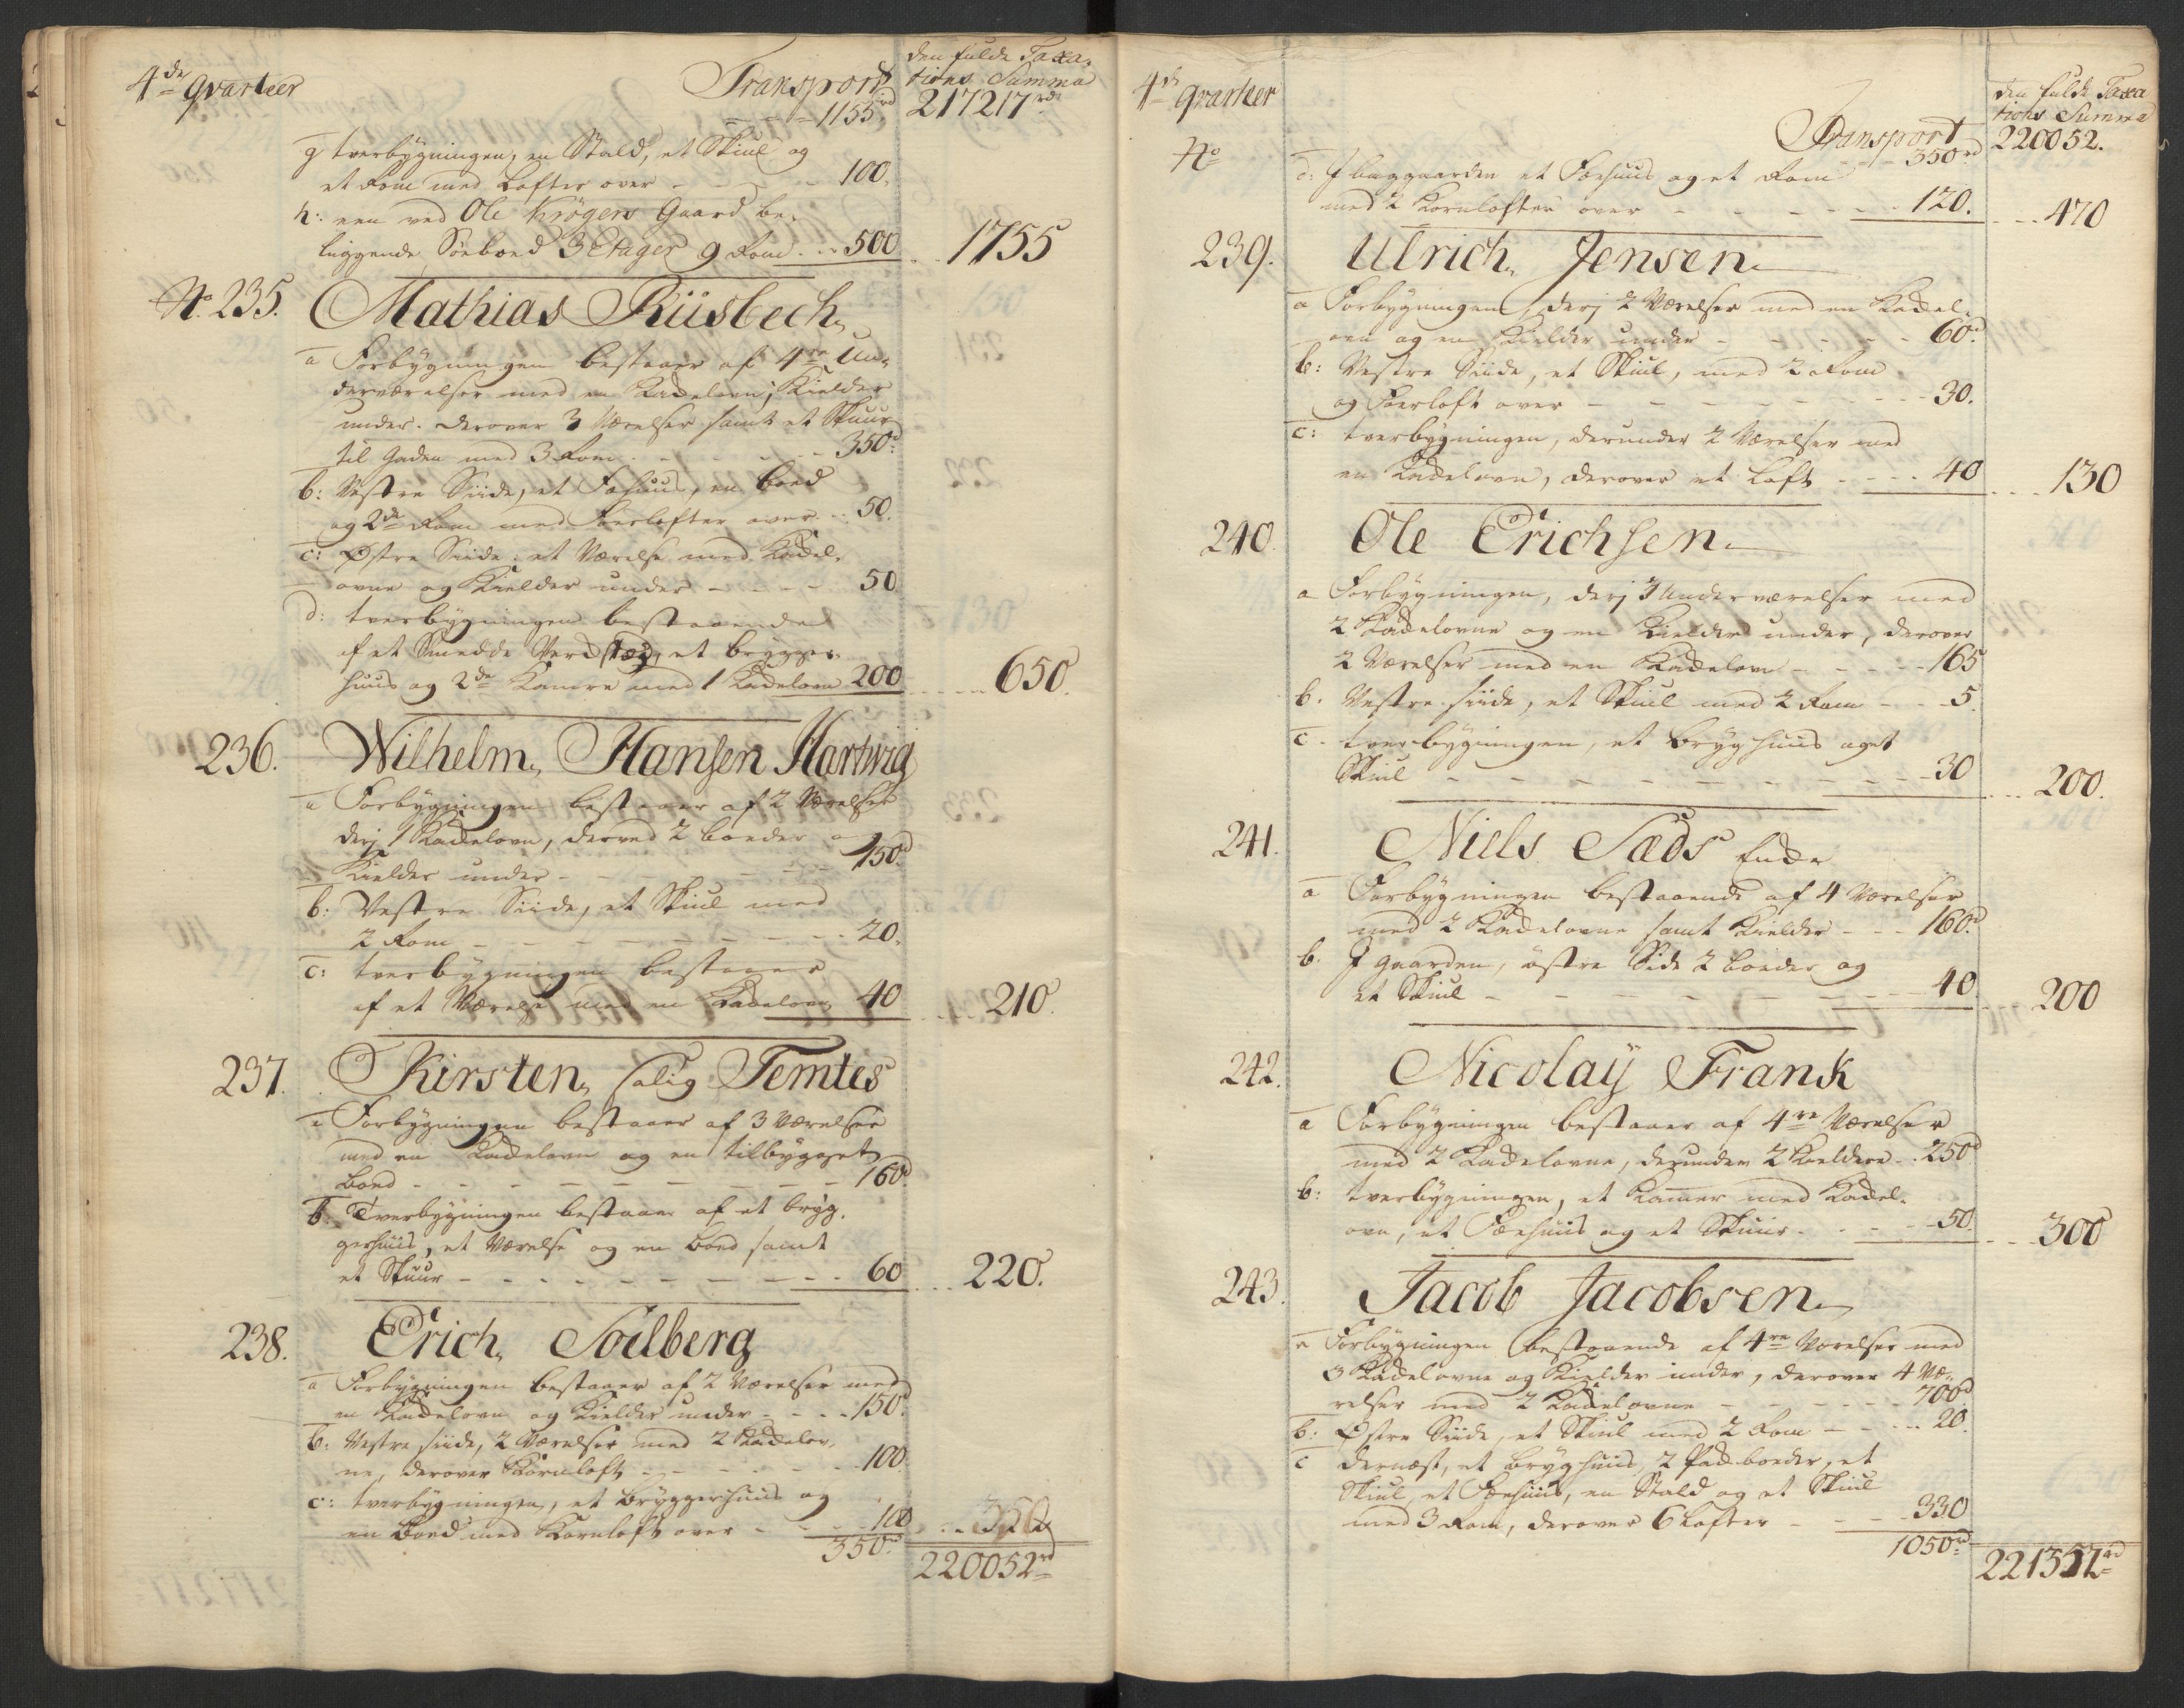 4de qvarteer
Transport
den fulde Taxa-
tions Summa
1155rd 217217rd
g tverbygningen, en Stald, et Skiul og
et Rom med Lofter over - - - 100.
h: een ved Ole Krögers Gaard be-
liggende Söeboed 3 Etager 9 Rom - - 500 - - 1755
No. 235. Mathias Riisbech
a Forbygningen bestaaer af 4re Un-
derværelser med en Kackelovn, Kielder
under. derover 3 Værelser samt et Skuur
til Gaden med 3 Rom - - - 350d:
b: Vestre Siide, et Fæhuus, en boed
og 2de Rom med Foerlofter over - - 50.
c: Østre Siide: et Værelse med Kackel-
ovne og Kielder under - - - - 50.
d: tverbygningen bestaaende
af et Smedde Verckstæd, et brygger-
huus og 2de Kamre med 1 Kackelovn 200 - - - 650.
236. Wilhelm Hansen Hartwig
a Forbygningen bestaaer af 2 Værelser
derj 1 Kackelovn, derved 2 boeder og
Kielder under - - - - 150d.
b: Vestre Siide, et Skiul med
2 Rom - - - - - - - - 20.
c: tverbygningen bestaaer
af et Værelse med en Kackelovn 40 - - - 210.
237. Kirsten salig Temtes
a Forbygningen bestaaer af 3 Værelser
med en Kackelovn og en tilbygget
boed - - - - - - - - - 160d.
b. Tverbygningen bestaaer af et bryg-
gerhuus, et Værelse og en boed samt
et Skuur - - - - - - - - - 60 - - - 220.
238. Erich Soelberg
a Forbygningen bestaaer af 2 Værelser med
en Kackelovn og Kielder under - - - - 150d.
b: Vestre siide, 2 Værelser med 2 Kackelov-
ne, derover Kornloft - - - - - 100
c: tverbygningen, et bryggerhuus og
en boed med Kornloft over - - - - 100
350d
220052rd
4de qvarteer
den fulde Taxa
tions Summa
Transport 220052.
No
350rd
d: J baggaarden et Fæehuus og et Rom
med 2 Kornlofter over - - - - - 120. - - 470
239. Ulrich Jensen
a Forbygningen, derj 2 Værelser med en Kackel-
ovn og en Kielder under - - - - - 60d.
b: Vestre Siide, et Skiul, med 2 Rom
og Foerloft over - - - - - - - 30.
c: tverbygningen, derunder 2 Værelser med
en Kackelovn, derover et Loft - - - - 40 - - - 130
240. Ole Erichsen
a Forbygningen, derj 3 Underværelser med
2 Kackelovne og en Kielder under, derover
2 Værelser med en Kackelovn - - - - 165
b. Vestre siide, et Skiul med 2 Rom - - - 5.
c. tverbygningen, et bryghuus og et
Skiul - - - - - - - - - - 30 - - - 200.
241. Niels Sæds Encke
a Forbygningen bestaaende af 4 Værelser
med 2 Kackelovne samt Kielder - - - 160d.
b. J gaarden, östre Side 2 boeder og
et Skiul - - - - - - - - 40. 200
242. Nicolaÿ Frank
a Forbygningen bestaaer af 4re Værelser
med 2 Kackelovne, derunder 2 Kieldere - - 250d
b: tverbygningen, et Kammer med Kackel-
ovn, et Fæehuus og et Skuur - - - - 50. - - - 300
243. Jacob Jacobsen
a Forbygningen bestaaende af 4re Værelser med
3 Kackelovne og Kielder under, derover 4 Væ-
relser med 2 Kackelovne - - - - - - 700d
b: Østre Siide, et Skiul med 2 Rom - - - - - 20.
c dernæst, et bryghuus, 2 Pack boeder, et
Skiul, et Fæehuus, en Stald og et Skiul
med 3 Rom, derover 6 Lofter - - - - 330
1050rd
221352rd